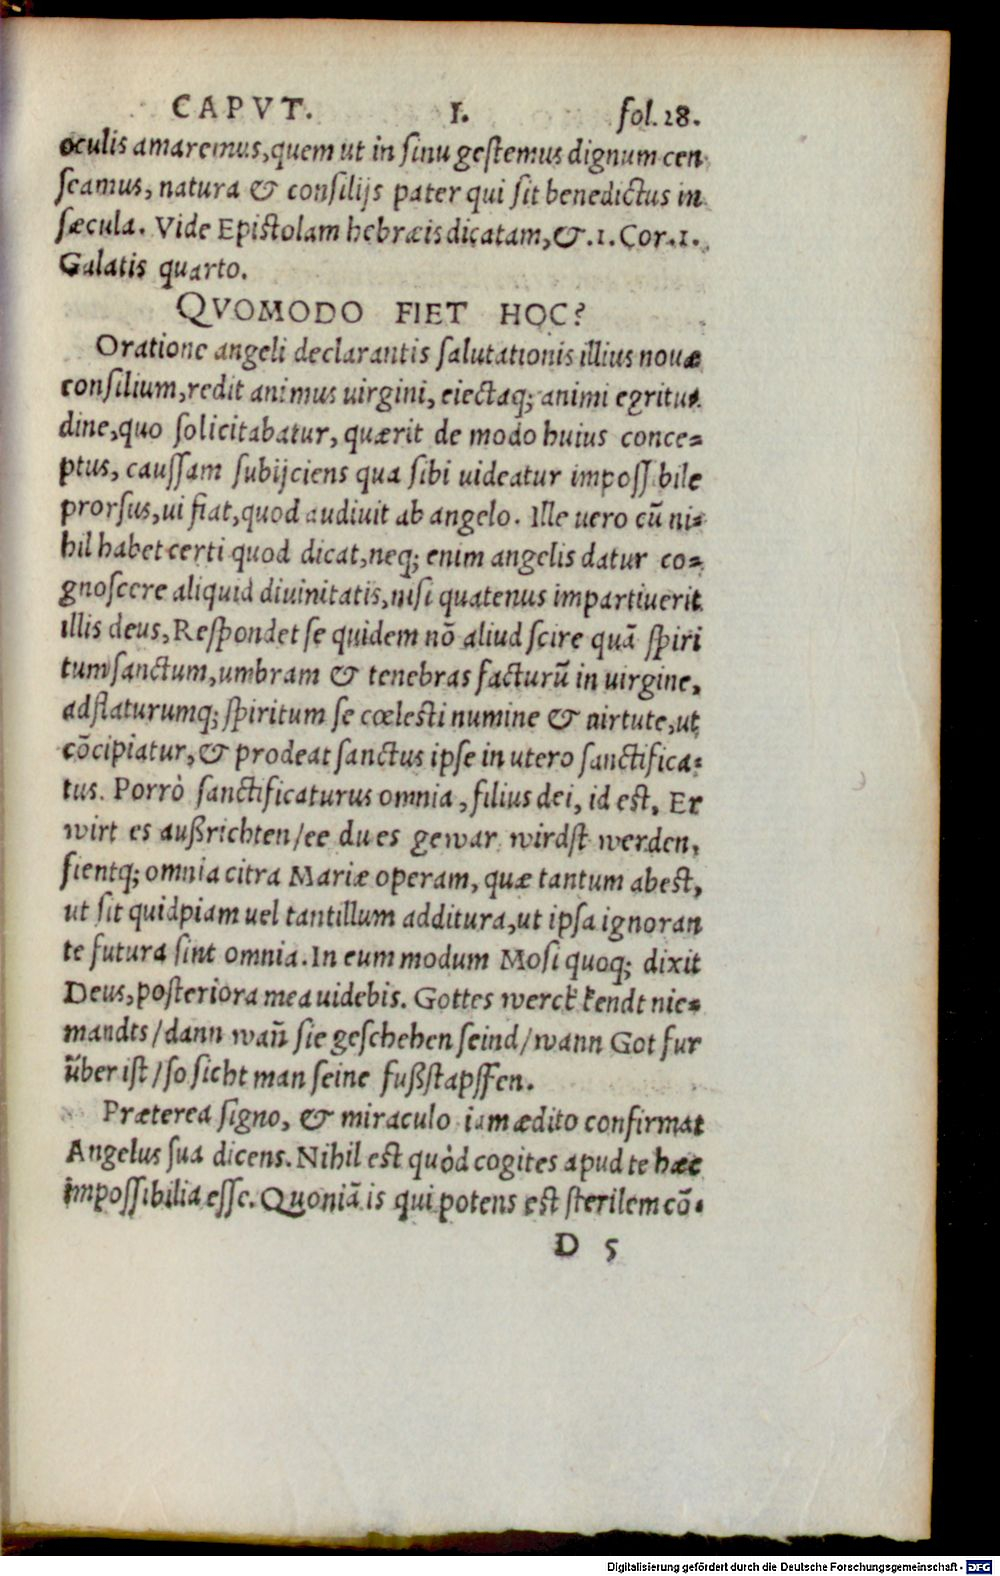 CAPVT. I. fol. 28.
oculis amaremus, quem ut in sinu gestemus dignum cen
seamus, natura & consilijs pater qui sit benedictus in
sæcula. Vide Epistolam hebræis dicatam, &. 1. Cor. 1.
Galatis quarto.
QVOMODO FIET HOC?
Oratione angeli declarantis salutationis illius nouæ
consilium, redit animus uirgini, eiectaq; animi egritu-
dine, quo solicitabatur, quærit de modo huius conce=
ptus, caussam subijciens qua sibi uideatur impossibile
prorsus, ui fiat, quod audiuit ab angelo. Ille uero cū ni=
hil habet certi quod dicat, neq; enim angelis datur co=
gnoscere aliquid diuinitatis, nisi quatenus impartiuerit
illis deus, Respondet se quidem nō aliud scire quā spiri
tum sanctum, umbram & tenebras facturū in uirgine,
adflaturumq; spiritum se cœlesti numine & uirtute, ut
cōcipiatur, & prodeat sanctus ipse in utero sanctifica=
tus. Porrò sanctificaturus omnia, filius dei, id est, Er
wirt es außrichten/ee du es gewar wirdst werden,
fientq; omnia citra Mariæ operam, quæ tantum abest,
ut sit quidpiam uel tantillum additura, ut ipsa ignoran
te futura sint omnia. In eum modum Mosi quoq; dixit
Deus, posteriora mea uidebis. Gottes werck kendt nie=
mandts/dann wañ sie geschehen seind/wann Got fur
über ist/so sicht man seine fußstapffen.
Præterea signo, & miraculo iam ædito confirmat
Angelus sua dicens. Nihil est quòd cogites apud te hæc
impossibilia esse. Quoniā is qui potens est sterilem cō=
D 5
Digitalisierung gefördert durch die Deutsche Forschungsgemeinschaft - DFG